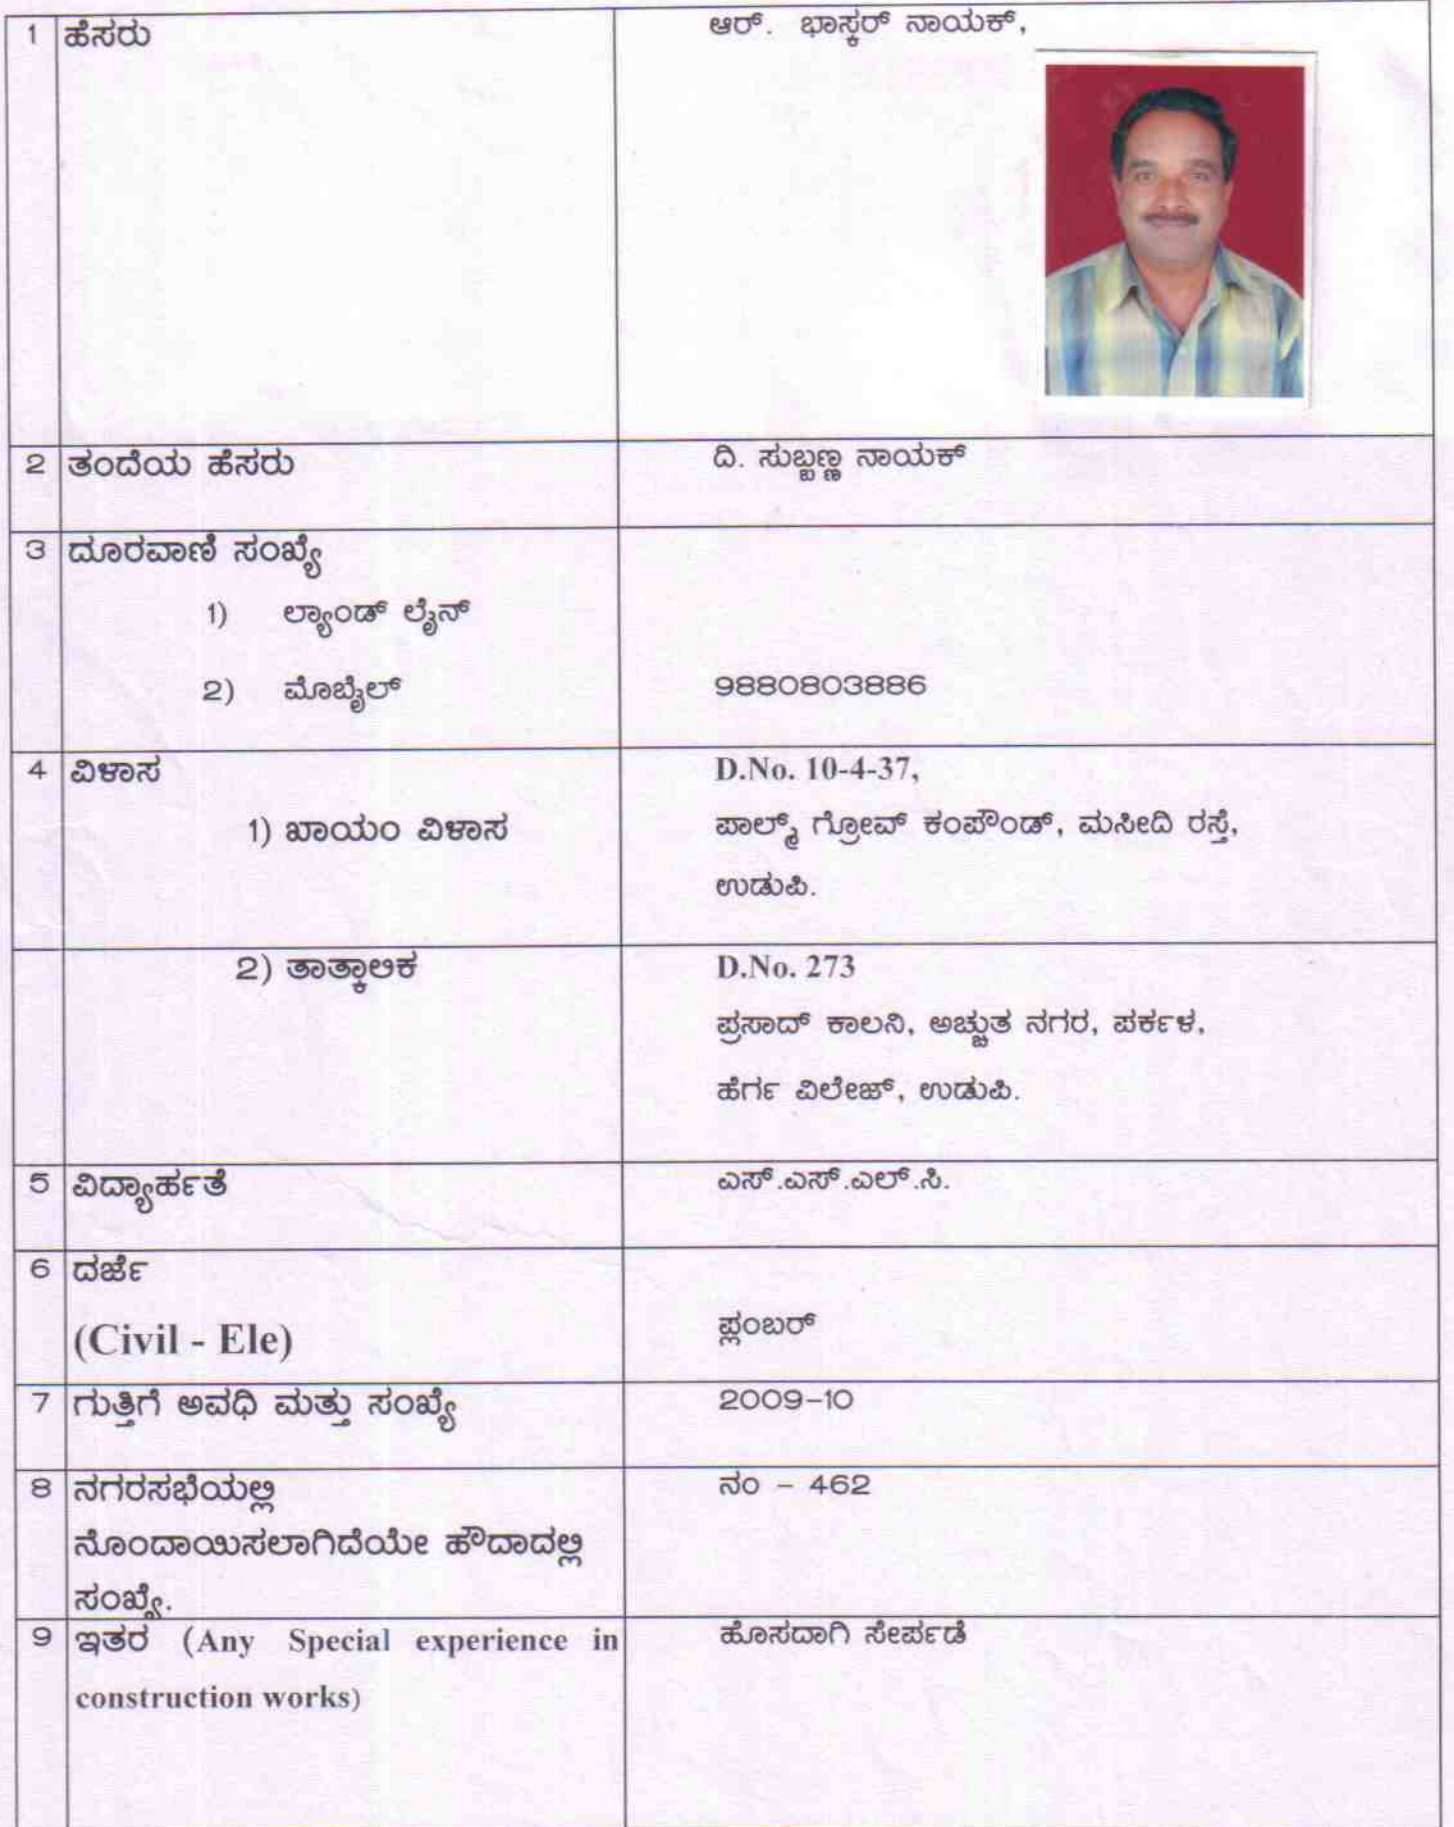 1 ಹೆಸರು ಆರ್. ಭಾಸ್ಕರ್ ನಾಯಕ್,
2 ತಂದೆಯ ಹೆಸರು ದಿ. ಸುಬ್ಬಣ್ಣ ನಾಯಕ್
3 ದೂರವಾಣಿ ಸಂಖ್ಯೆ
1) ಲ್ಯಾಂಡ್ ಲೈನ್
2) ಮೊಬೈಲ್ 9880803886
4 ವಿಳಾಸ D.No. 10-4-37,
1) ಖಾಯಂ ವಿಳಾಸ ಪಾಲ್ಮ್ ಗ್ರೋವ್ ಕಂಪೌಂಡ್, ಮಸೀದಿ ರಸ್ತೆ,
ಉಡುಪಿ.
2) ತಾತ್ಕಾಲಿಕ D.No. 273
ಪ್ರಸಾದ್ ಕಾಲನಿ, ಅಚ್ಚುತ ನಗರ, ಪರ್ಕಳ,
ಹೆರ್ಗ ವಿಲೇಜ್, ಉಡುಪಿ.
5 ವಿದ್ಯಾರ್ಹತೆ ಎಸ್.ಎಸ್.ಎಲ್.ಸಿ.
6 ದರ್ಜೆ
(Civil - Ele) ಪ್ಲಂಬರ್
7 ಗುತ್ತಿಗೆ ಅವಧಿ ಮತ್ತು ಸಂಖ್ಯೆ 2009-10
8 ನಗರಸಭೆಯಲ್ಲಿ ನಂ - 462
ನೊಂದಾಯಿಸಲಾಗಿದೆಯೇ ಹೌದಾದಲ್ಲಿ
ಸಂಖ್ಯೆ.
9 ಇತರ (Any Special experience in ಹೊಸದಾಗಿ ಸೇರ್ಪಡೆ
construction works)